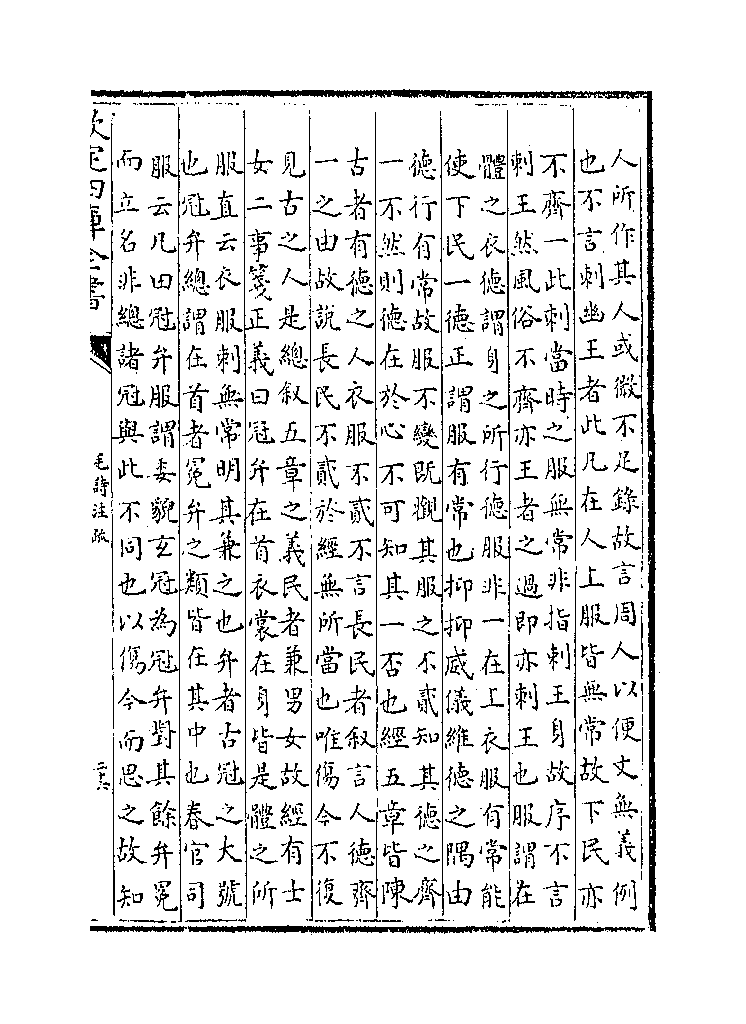 人所作其人或微不足錄故言周人以便文無義例
也不言刺幽王者此凡在人上服皆無常故下民亦
不齊一此刺當時之服無常非指刺王身故序不言
刺王然風俗不齊亦王者之過即亦刺王也服謂在
體之衣德謂身之所行德服非一在上衣服有常能
使下民一德正謂服有常也抑抑威儀維德之隅由
德行有常故服不變既觀其服之不貳知其德之齊
一不然則德在於心不可知其一否也經五章皆陳
古者有德之人衣服不貳不言長民者叙言人德齊
一之由故說長民不貳於經無所當也唯傷今不復
見古之人是總叙五章之義民者兼男女故經有士
女二事箋正義曰冠弁在首衣裳在身皆是體之所
服直云衣服刺無常明其兼之也弁者古冠之大號
也冠弁總謂在首者冕弁之類皆在其中也春官司
服云凡田冠弁服謂委貌玄冠為冠弁對其餘弁冕
而立名非總諸冠與此不同也以傷今而思之故知
欽定四庫全書
毛詩注疏
二十六